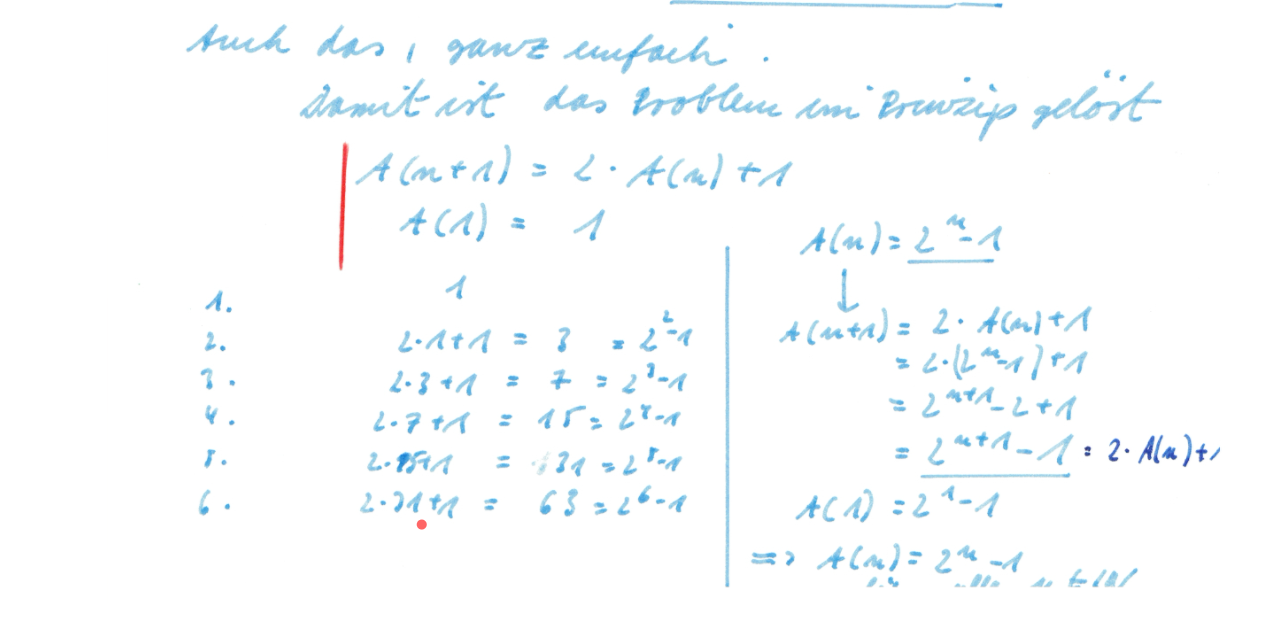 Auch das, ganz einfach.
Damit ist das Problem im Prinzip gelöst
A(n+1) = 2 · A(n) + 1
A(1) = 1
1. 1
2. 2·1+1 = 3 = 2²-1
3. 2·3+1 = 7 = 2³-1
4. 2·7+1 = 15 = 2⁴-1
5. 2·15+1 = 31 = 2⁵-1
6. 2·31+1 = 63 = 2⁶-1
A(n) = 2ⁿ-1
↓
A(n+1) = 2· A(n)+1
= 2·(2ⁿ-1)+1
= 2ⁿ⁺¹-2+1
= 2ⁿ⁺¹-1 = 2·A(n)+1
A(1) = 2¹-1
=> A(n) = 2ⁿ-1